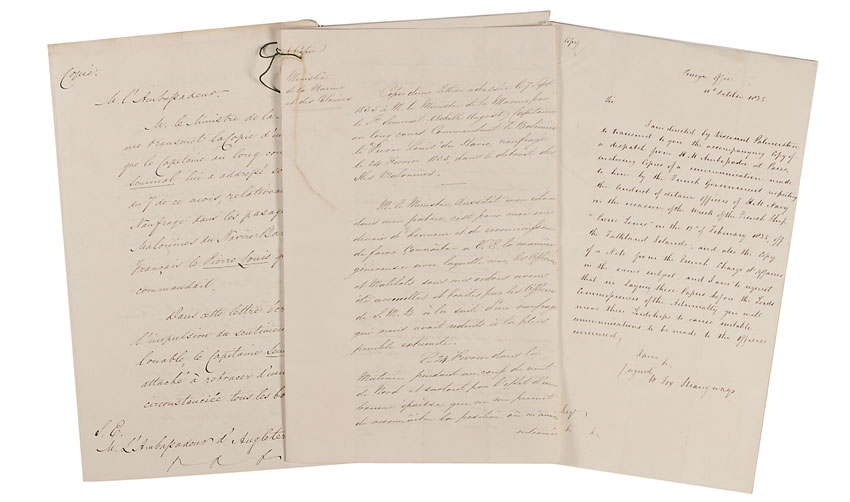 Copie.
M. l'Ambassadeur,
M. le Ministre de la
transmet la Copie d'un
que le Capitaine au long cou
Seminal lui a adressée
du 7 de ce mois, relative au
Naufrage dans les parages
Malouines du Navire Ba
Français le Pierre Louis, q
commandait.
Dans cette lettre écri
l'impulsion du sentiment
louable, le Capitaine Sem
attaché à retracer d'une
circonstanciée tous les bo
S. E.
M. L'Ambassadeur d'Angleter
(Copie)
Ministère
de la Marine
et des Colonies
Copie d'une lettre adressée le 7 Sept
1835 à M. le Ministre de la Marine par
le Sr. Seminal Capitaine
au long cours Commandant le Baleinier
le Pierre Louis du Havre, naufragé
le 24 Février 1835 dans le détroit des
Iles Malouines.
M. le Ministre Aussitôt mon retour
dans ma patrie, c'est pour moi un
devoir d'honneur et de reconnaissance
de faire Connaitre à V. E. la manière
généreuse avec laquelle moi, les Officiers
et Matelots sous mes ordres avons
été accueillis et traités par les Officiers
de S. M. B. à la suite d'un naufrage
qui nous avait réduits à la plus
pénible extrémité.
Le 24 Février dans la
Matinée pendant un coup de vent
de Nord et surtout par l'effet d'une
brume épaisse que ne me permit
de reconnaître la position où m'avai
entrainé
Copy
Foreign Office
October 1835
Sir
I am directed by Viscount Palmerston
to transmit to you the accompanying Copy of
a despatch from H. M. Ambassador at Paris,
inclosing Copies of a communication made
to him by the French Government respecting
the conduct of certain officers of H. M. Navy
on the occasion of the Wreck of the French Ship
"Pierre Louis" on the of February 1835, off
the Falkland Islands; and also the Copy
of a Note from the French Chargé d'Affaires
on the same subject and I am to request
that in laying these Papers before the Lords
Commissioners of the Admiralty you will
move their Lordships to cause suitable
communications to be made to the officers
concerned,
I am &c
signed,
W Fox Strangways